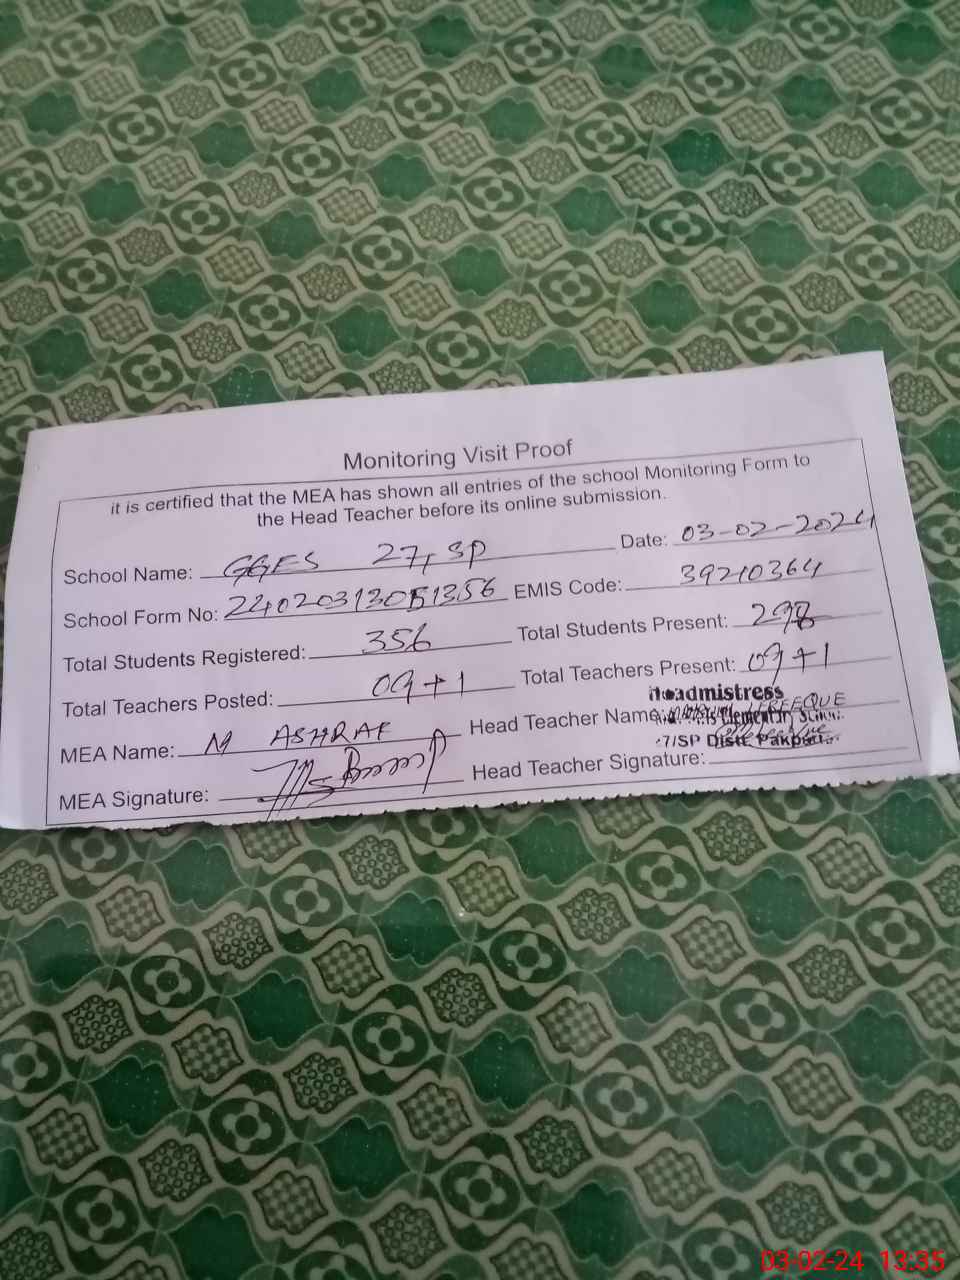 Monitoring Visit Proof
it is certified that the MEA has shown all entries of the school Monitoring Form to
the Head Teacher before its online submission.
School Name: GGES 27, SP Date: 03-02-2024
School Form No: 22402031305 1356 EMIS Code: 39210364
Total Students Registered: 356 Total Students Present: 298
Total Teachers Posted: 09+1 Total Teachers Present: 09+1
Headmistress
MEA Name: M ASHRAF Head Teacher Name:
27/SP Distt Pakpattan
MEA Signature: Head Teacher Signature:
03-02-24 13:35